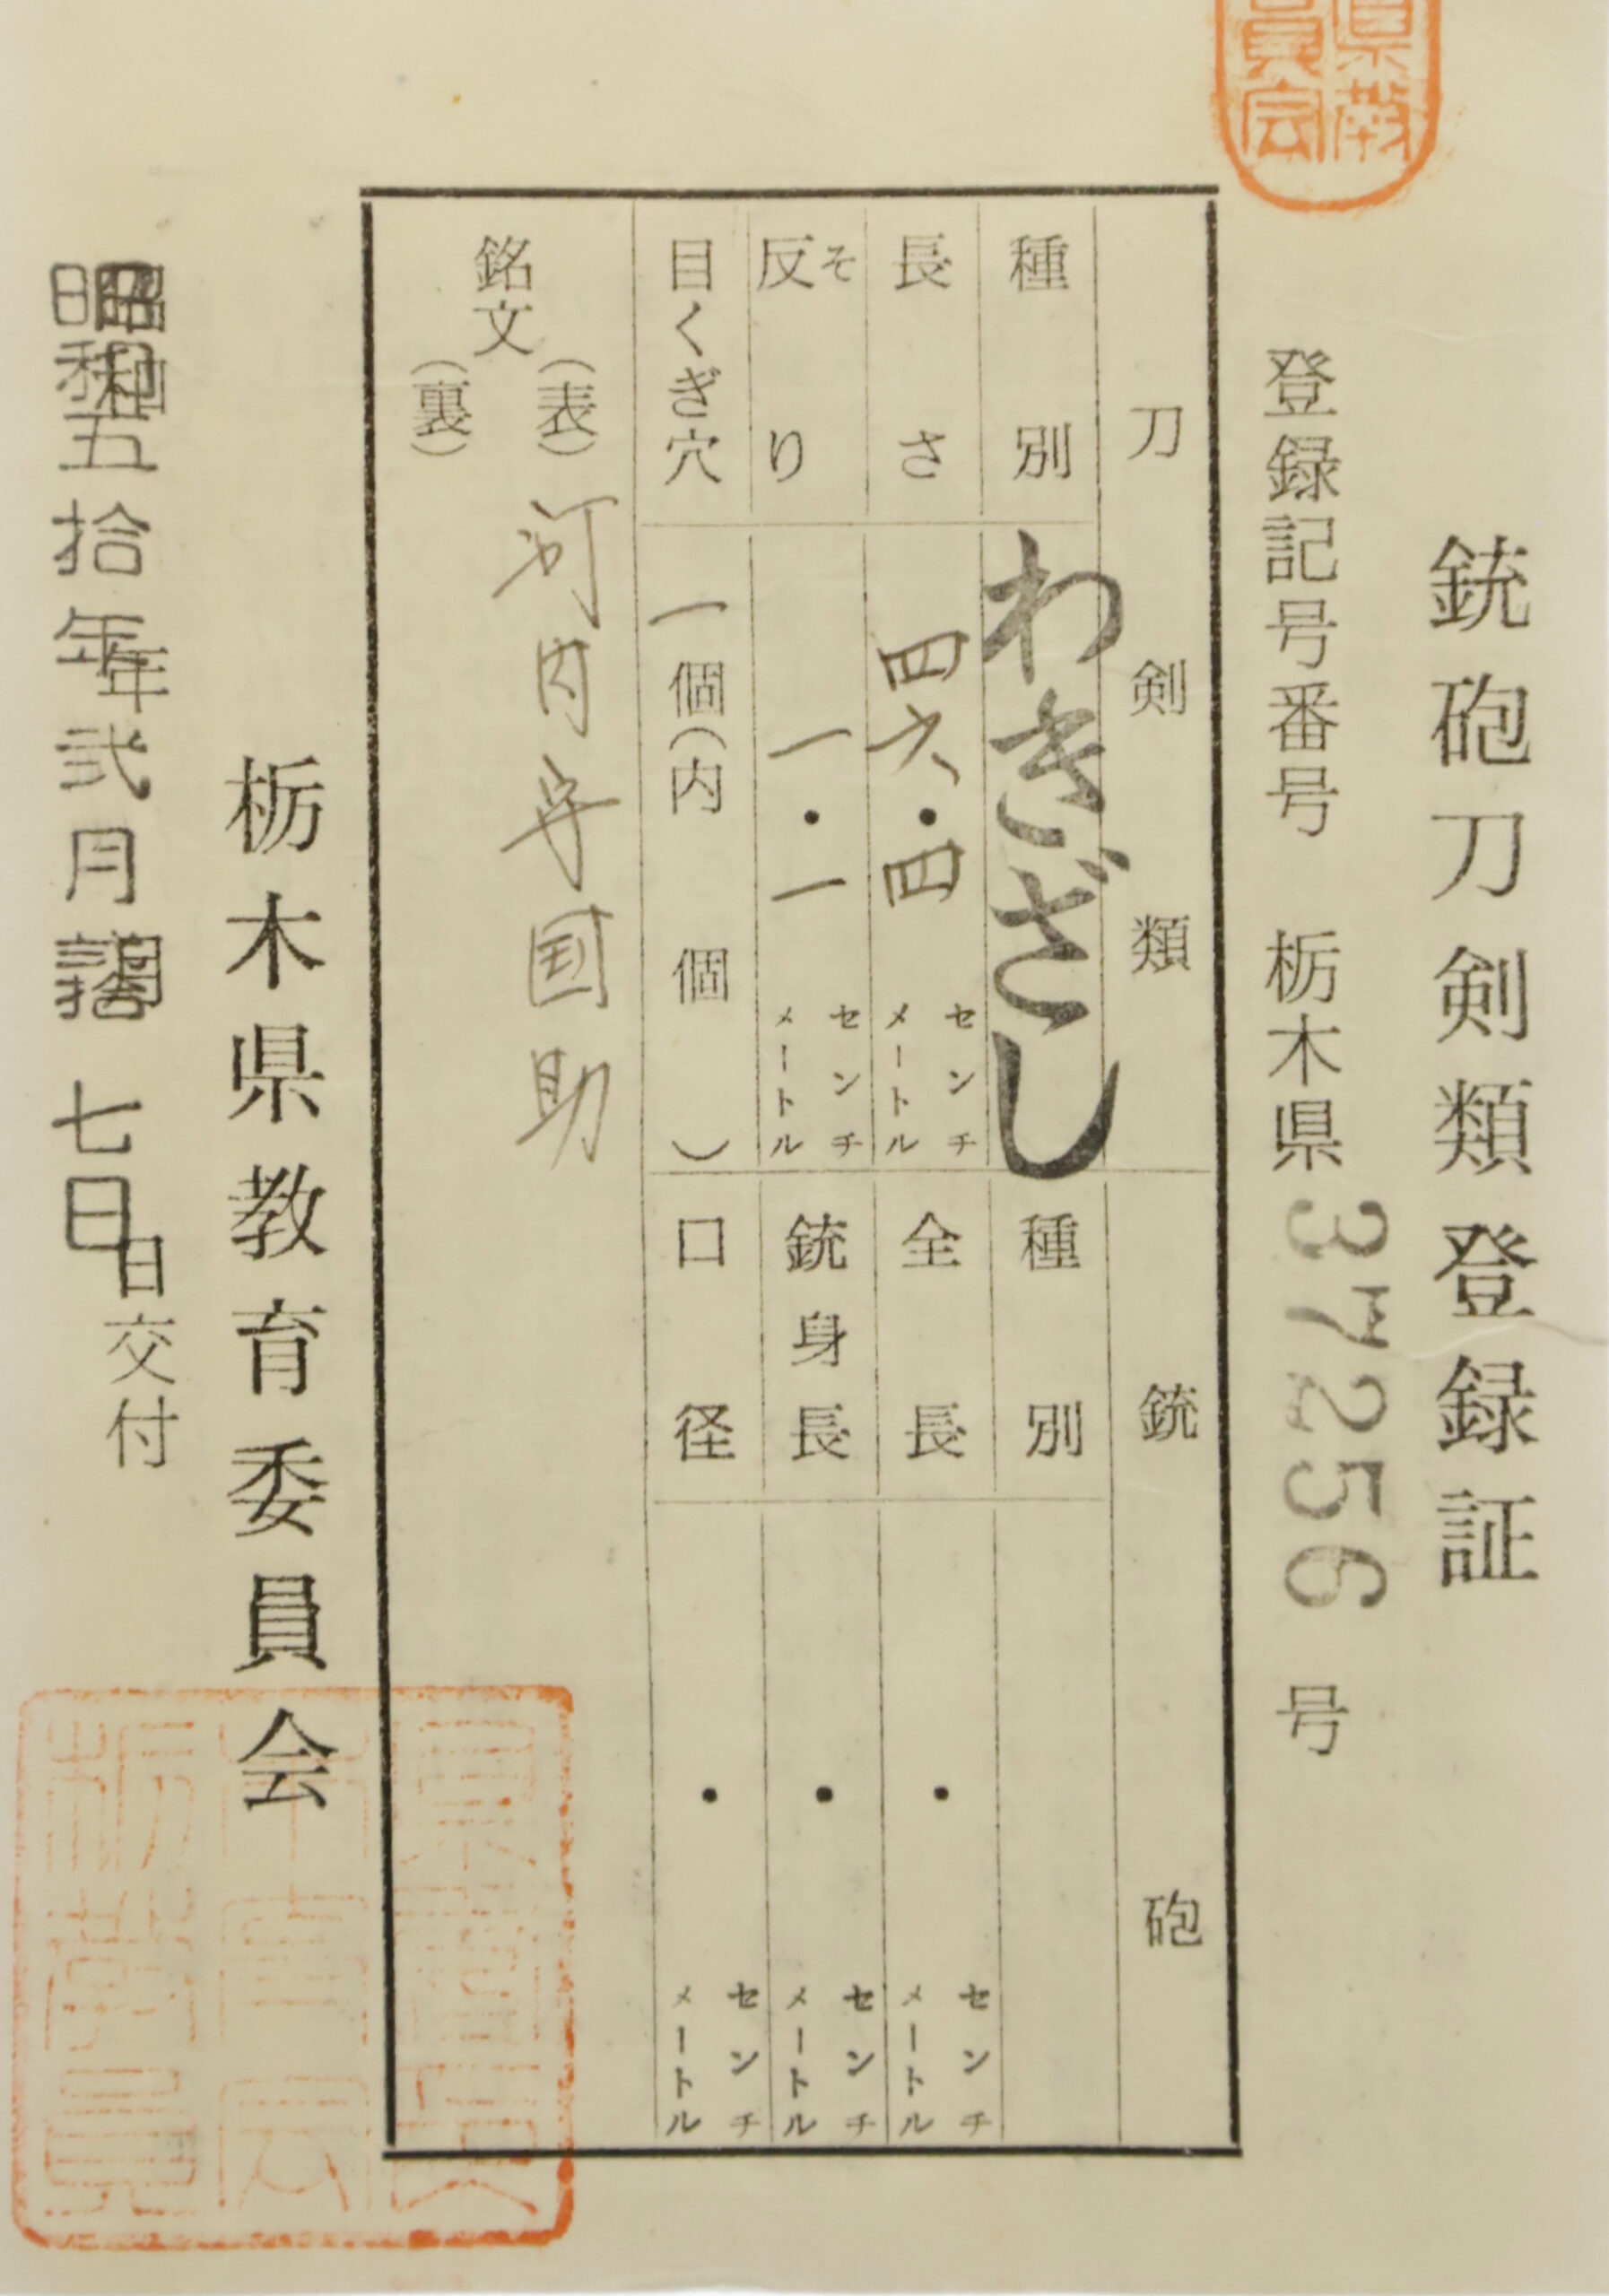 銃砲刀剣類登録証
登録記号番号 栃木県 37256 号
刀剣類
種別 わきざし
長さ 四六・四 センチメートル
反り そ 一・一 センチメートル
目くぎ穴 一個(内 個)
銘文
(表) 河内守国助
(裏)
銃砲
種別
全長 ・ センチメートル
銃身長 ・ センチメートル
口径 ・ センチメートル
栃木県教育委員会
昭和五拾年弐月 七日交付